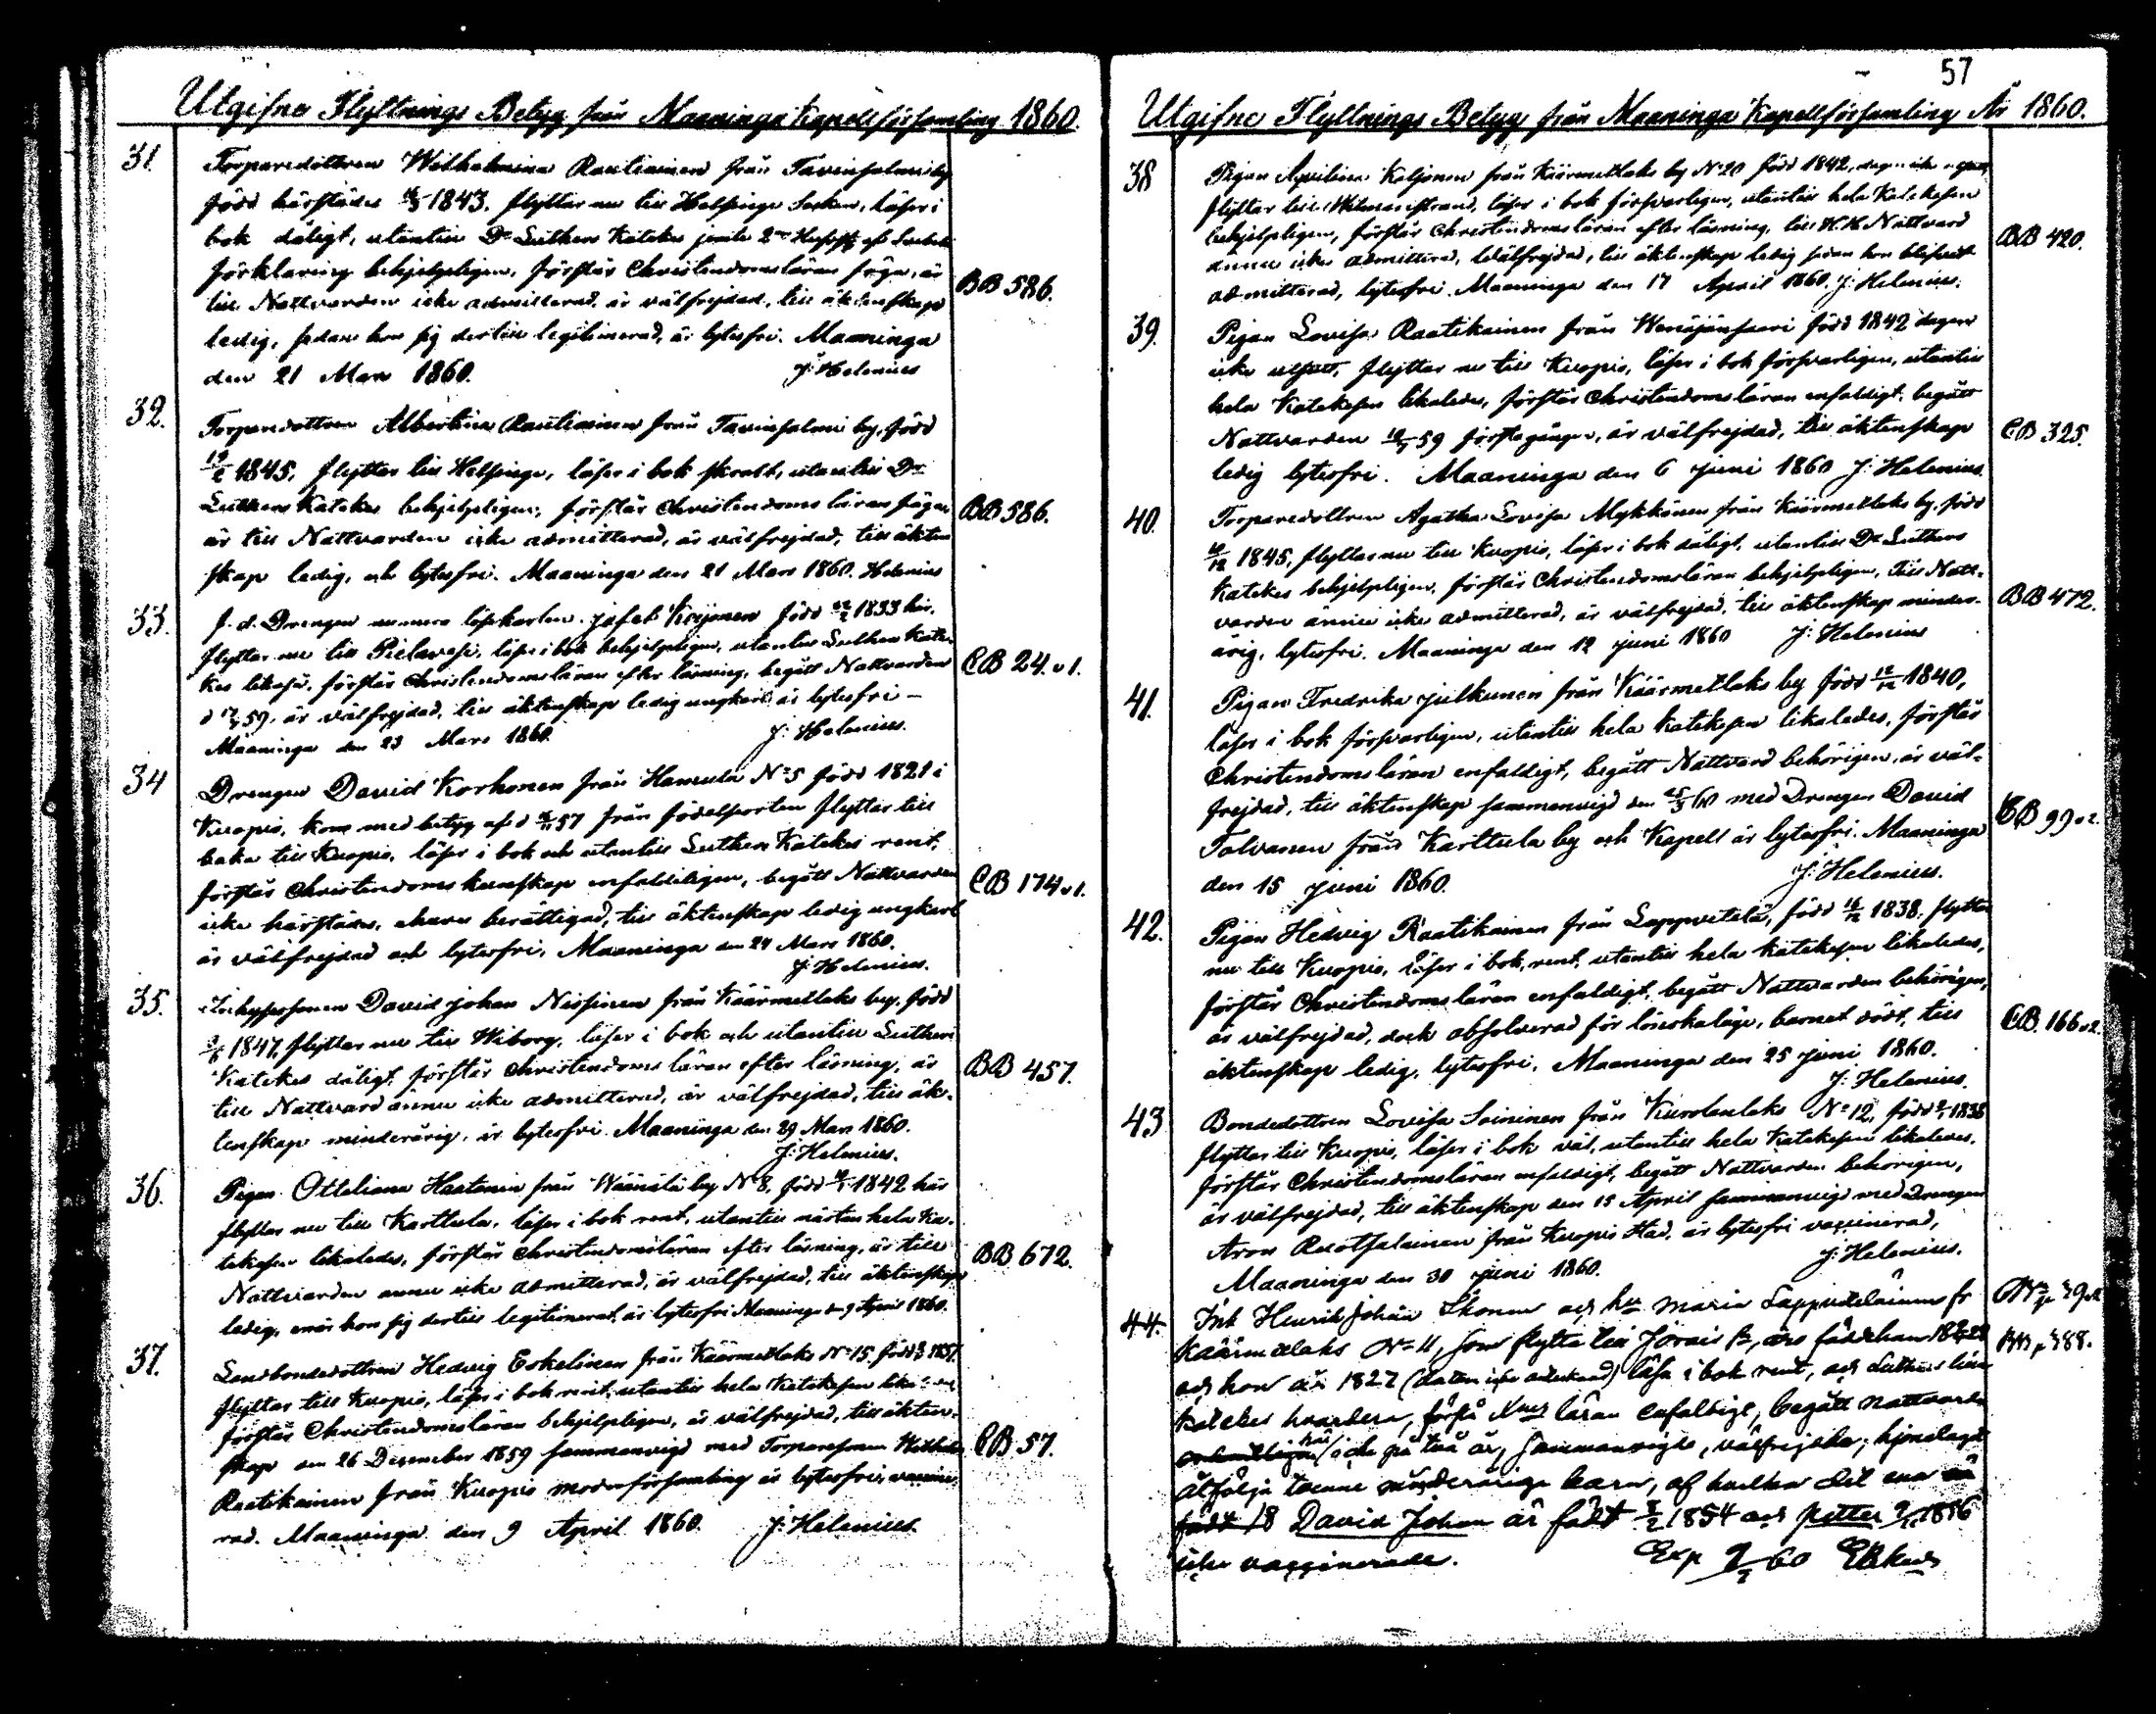 Utgifne Flyttnings Betyg från Maaninga Kapellförsamling 1860.
31. Torparedottren Wilhelmina Rautiainen från Tavinsalmi by
född härstädes 1843. flyttar nu till Helsinge Socken, läser i
bok dåligt, utantill Dr Luthers Katekes jemte
förklaring behjelpligen, förstår Christendomsläran föga, är
till Nattvarden icke admitterad, är välfrejdad, till äktenskap
BB 586.
ledig, sedan hon sig dertill legitimerad, är lytesfri. Maaninga
den 21 Mars 1860. J: Helenius
32. Torparedottren Albertina Rautiainen från Tavinsalmi by, född
1845, flyttar till Helsinge, läser i bok skralt, utantill Dr
Luthers Katekes behjelpligen, förstår Christendoms läran föga,
BB 586.
är till Nattvarden icke admitterad, är välfrejdad, till äkten
skap ledig, och lytesfri. Maaninga den 21 Mars 1860. Helenius
33. f. d. Drengen numera löskarlen Josef Koijonen född 1833 här,
flyttar nu till Pielavesi, läser i bok behjelpligen, utantill Luthers Kate-
kes likaså, förstår Christendomsläran efter läsning, begått Nattvarden
CB 24. v 1.
d 59, är välfrejdad, till äktenskap ledig ungkarl är lytesfri –
Maaninga den 23 Mars 1860. J: Helenius.
34 Drengen David Korhonen från Hamula No 5 född 1821 i
Kuopio, kom med betyg af d 57 från födelseorten flyttar till
baka till Kuopio, läser i bok och utantill Luthers Katekes rent,
förstår Christendoms kunskap enfaldeligen, begått Nattvarden
CB 174 v 1.
icke härstädes, ehuru berättigad, till äktenskap ledig ungkarl
är välfrejdad och lytesfri, Maaninga den 24 Mars 1860.
J: Helenius.
35. Inhysessonen David Johan Nissinen från Käärmelaks by, född
1847, flyttar nu till Wiborg, läser i bok och utantill Luthers
Katekes dåligt, förstår Christendoms läran efter läsning, är
BB 457.
till Nattvard ännu icke admitterad, är välfrejdad, till äk-
tenskap minderårig, är lytesfri. Maaninga den 29 Mars 1860.
J: Helenius.
36. Pigan Otteliana Haatanen från Wäänälä by No 8, född 1842 här
flyttar nu till Karttula, läser i bok rent, utantill nästan hela Ka-
tekesen likaledes, förstår Christendomsläran efter läsning, är till
BB 672.
Nattvarden ännu icke admitterad, är välfrejdad, till äktenskap
ledig, enär hon sig dertill legitimerat, är lytesfri Maaninga d 9 April 1860.
37. Landbondedottren Hedvig Eskelinen från Käärmetlaks No 15, född 1837.
flyttar till Kuopio, läser i bok rent, utantill hela Katekesen
förstår Christendomsläran behjelpligen, är välfrejdad, till äkten-
skap den 26 December 1859 sammanvigd med Torparesonen
CB 57.
Raatikainen från Kuopio moderförsamling är lytesfri, vaccine-
rad. Maaninga den 9 April 1860. J: Helenius.
57
Utgifne Flyttnings Betyg från Maaninga Kapellförsamling År 1860.
38 Pigan Aqvilina Keljonen från Käärmetlaks by No 20 född 1842, dagen icke
flyttar till Wilmanstrand, läser i bok försvarligen, utantill hela Katekesen
behjelpligen, förstår Christendomsläran efter läsning, till H. H. Nattvard
BB 420.
ännu icke admitterad, välfrejdad, till äktenskap ledig sedan hon blifvit
admitterad, lytesfri. Maaninga den 17 April 1860. J: Helenius.
39. Pigan Lovisa Raatikainen från Wenäjänsaari född 1842 dagen
icke utsatt, flyttar nu till Kuopio, läser i bok försvarligen, utantill
hela Katekesen likaledes, förstår Christendomsläran enfaldigt, begått
Nattvarden 59 första gången, är välfrejdad, till äktenskap
CB 325.
ledig lytesfri. Maaninga den 6 Juni 1860 J: Helenius.
40. Torparedottren Agatha Lovisa Mykkänen från Käärmetlaks by, född
1845, flyttar nu till Kuopio, läser i bok dåligt, utantill Dr Luthers
Katekes behjelpligen, förstår Christendomsläran behjelpligen, till Natt-
BB 472.
varden ännu icke admitterad, är välfrejdad, till äktenskap minder-
årig, lytesfri. Maaninga den 12 Juni 1860 J: Helenius
41. Pigan Fredrika Julkunen från Käärmetlaks by född 1840,
läser i bok försvarligen, utantill hela Katekesen likaledes, förstår
Christendomsläran enfaldigt, begått Nattvard behörigen, är väl-
frejdad, till äktenskap sammanvigd den 60 med Drengen David
CB 99 v 2.
Tolvanen från Karttula by och Kapell är lytesfri. Maaninga
den 15 Juni 1860. J: Helenius.
42. Pigan Hedvig Raatikainen från Lappvetelä, född 1838, flyttar
nu till Kuopio, läser i bok, rent, utantill hela Katekesen likaledes,
förstår Christendomsläran enfaldigt, begått Nattvarden behörigen,
är välfrejdad, dock absolverad för lönskaläge, barnet dödt, till
CB. 166 v 2.
äktenskap ledig, lytesfri, Maaninga den 25 Juni 1860.
J: Helenius.
43 Bondedottren Lovisa Soininen från Kurolanlaks No 12, född 1838
flyttar till Kuopio, läser i bok väl, utantill hela Katekesen likaledes.
förstår Christendomsläran enfaldigt, begått Nattvarden behörigen,
är välfrejdad, till äktenskap den 15 April sammanvigd med Drengen
Aron Ruotsalainen från Kuopio Stad, är lytesfri vaccinerad,
Maaninga den 30 Juni 1860. J: Helenius.
44. Inh Henrik Johan Ikonen och hu Maria Lappeteläinen fr
Käärmelaks No 11, som flytta till Jorois
BB p 488.
och hon år 1827 läsa i bok rent, och Luthers
Katekes hvardera, förstå Xnes läran enfaldigt, begått nattvard
icke på två år, sammanvigde, välfrejdade, hjonelags
åtfölja tvenne minderåriga barn, af hvilka det ena
David Johan är född 1854 och Petter 1856
icke vaccinerade. Exp 60